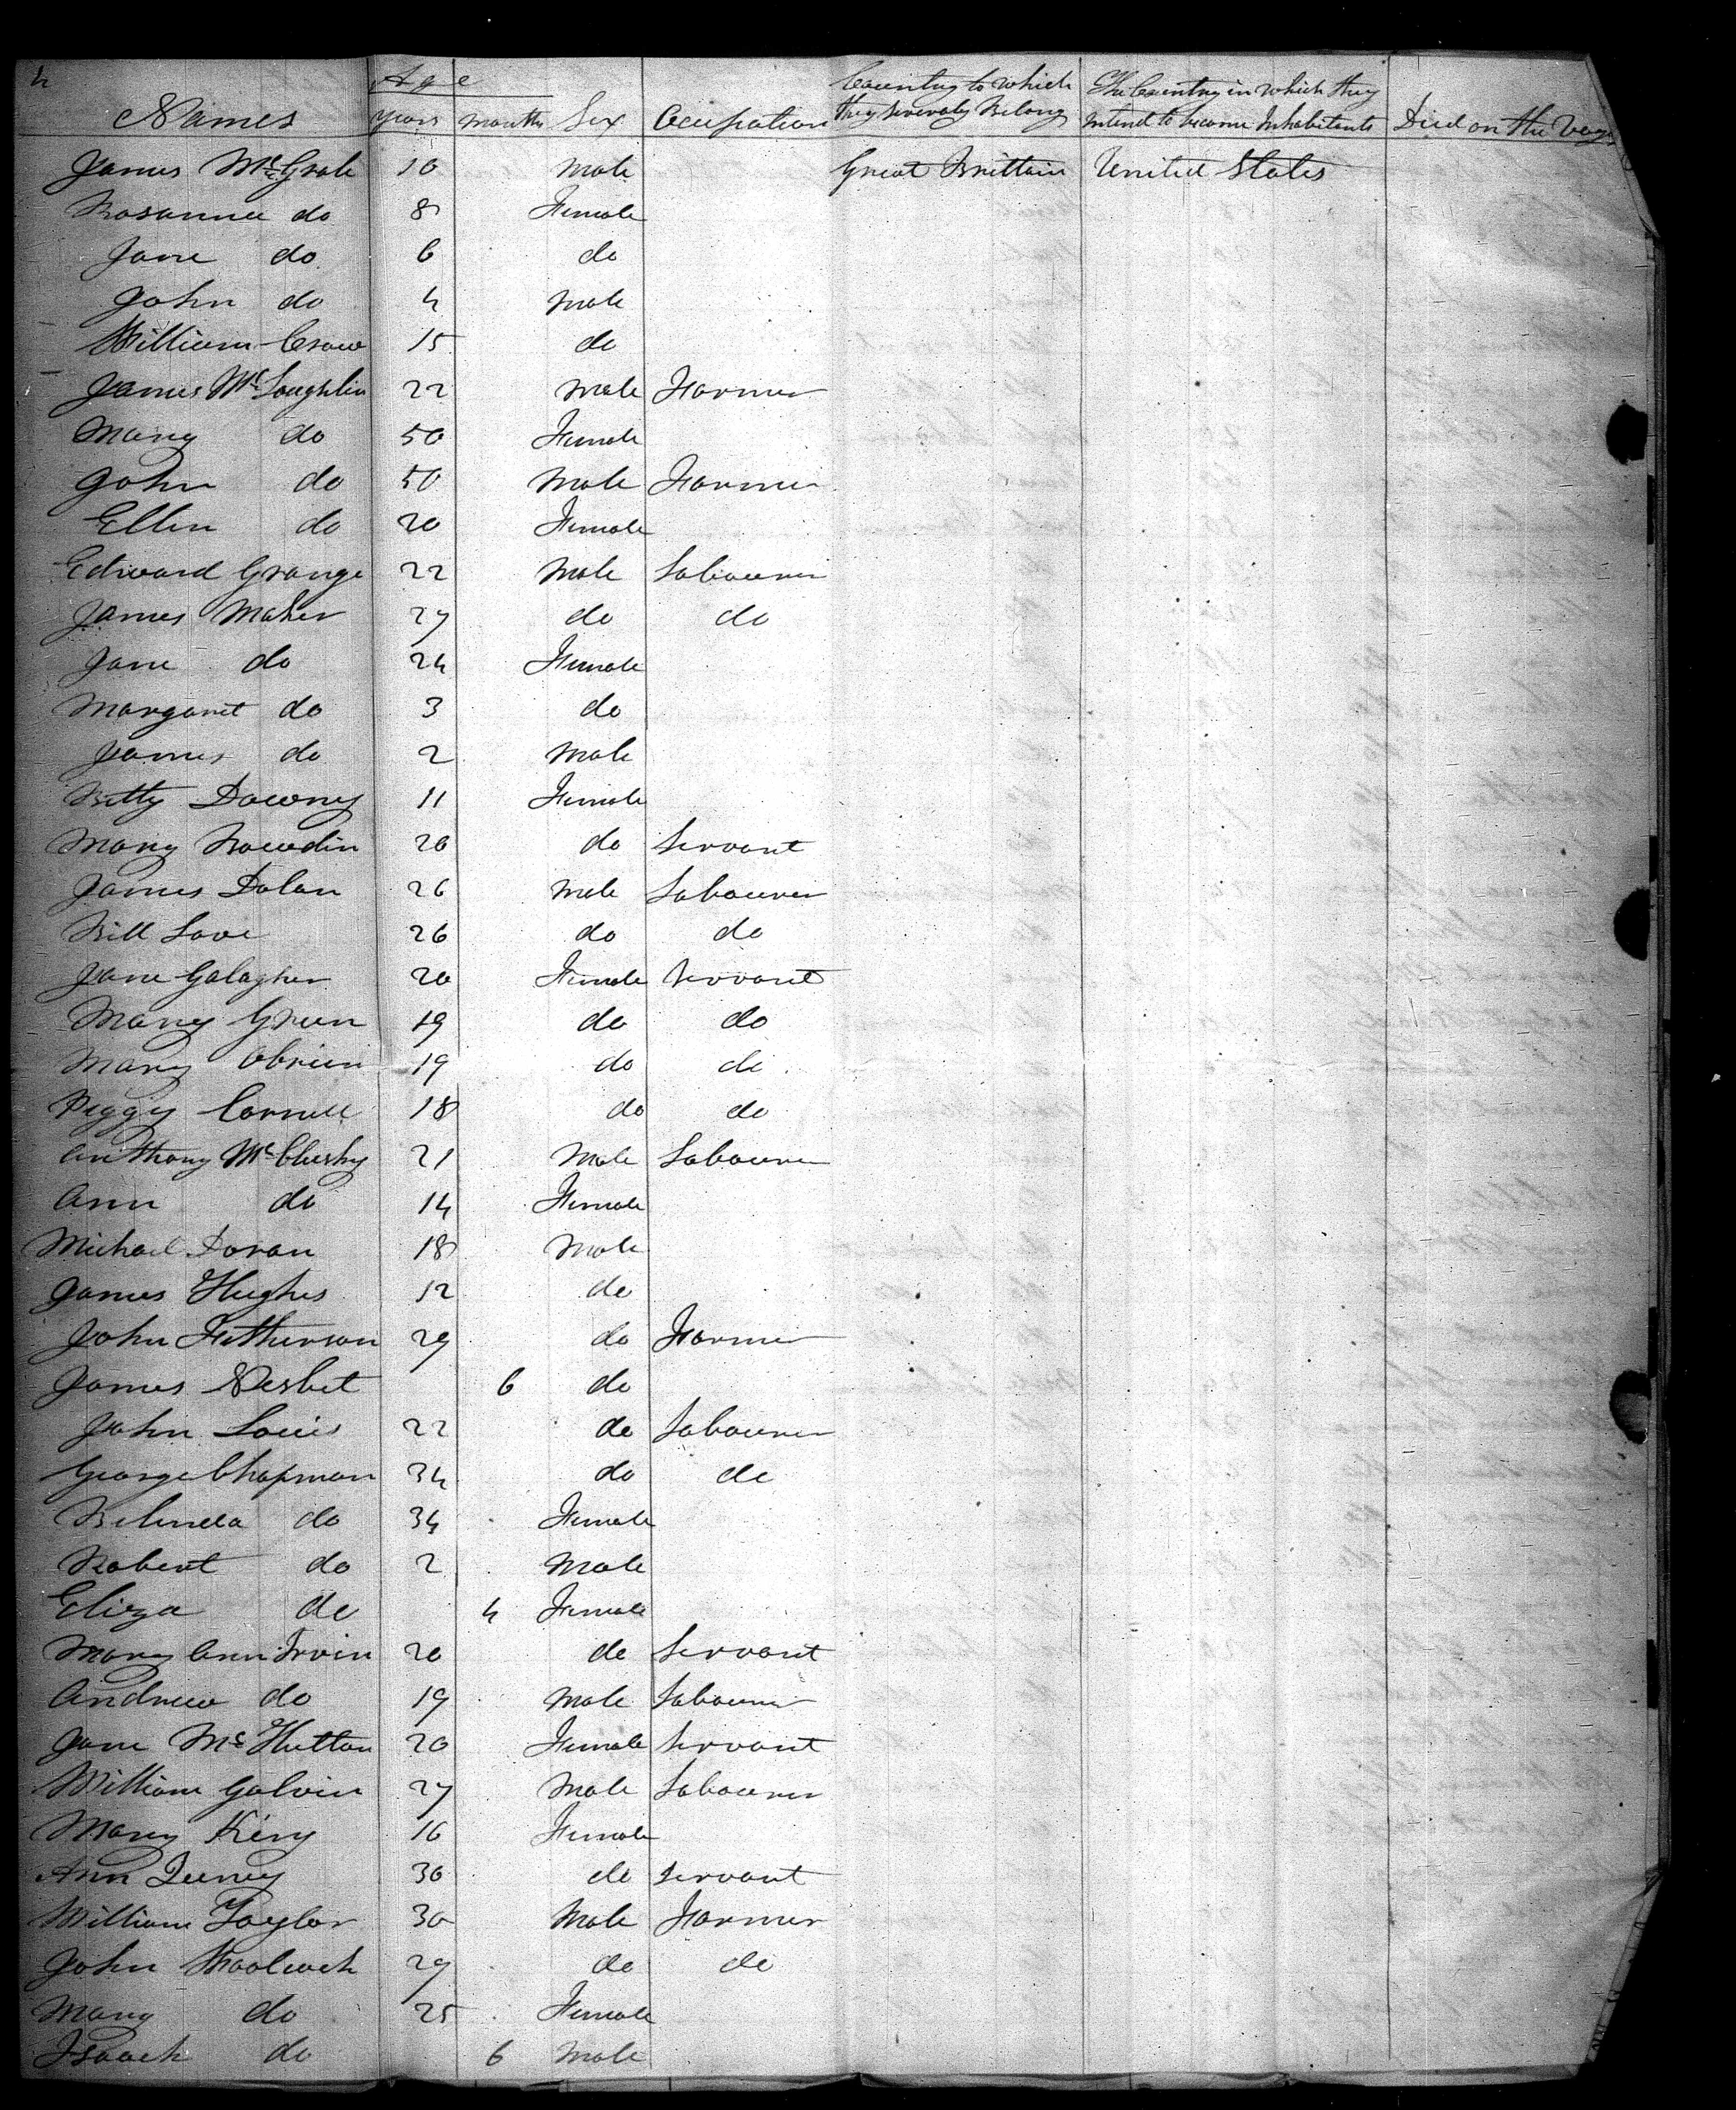 4
Age
Names Years Months Sex Occupation Country to which they severally Belong The Country in which they intend to become Inhabitants Died on the Voyage
James McGrale 10 Male Great Brittain United States
Rosanna do 8 Female
Jane do 6 do
John do 4 Male
William Crow 15 do
James McLoughlin 22 Male Farmer
Mary do 50 Female
John do 50 Male Farmer
Ellin do 20 Female
Edward Grange 22 Male Labourer
James Maher 27 do do
Jane do 24 Female
Margaret do 3 do
James do 2 Male
Betty Downy 11 Female
Mary 20 do Servant
James Dolan 26 Male Labourer
Bill Love 26 do do
Jane Galagher 20 Female Servant
Mary Green 19 do do
Mary Obrien 19 do do
Peggy Cornell 18 do do
Anthony McClusky 21 Male Labourer
Ann do 14 Female
Michael Doran 18 Male
James Hughs 12 do
John Fetherson 29 do Farmer
James Nesbet 6 do
John Louis 22 do Labourer
George Chapman 34 do do
Belinda do 34 Female
Robert do 2 Male
Eliza do 4 Female
Mary Ann Irvin 20 do Servant
Andrew do 19 Male Labourer
Jane McHutton 20 Female Servant
William Galvin 27 Male Labourer
Mary King 16 Female
Ann 30 do Servant
William Taylor 30 Male Farmer
John Woolcock 29 do do
Mary do 25 Female
Isaach do 6 Male